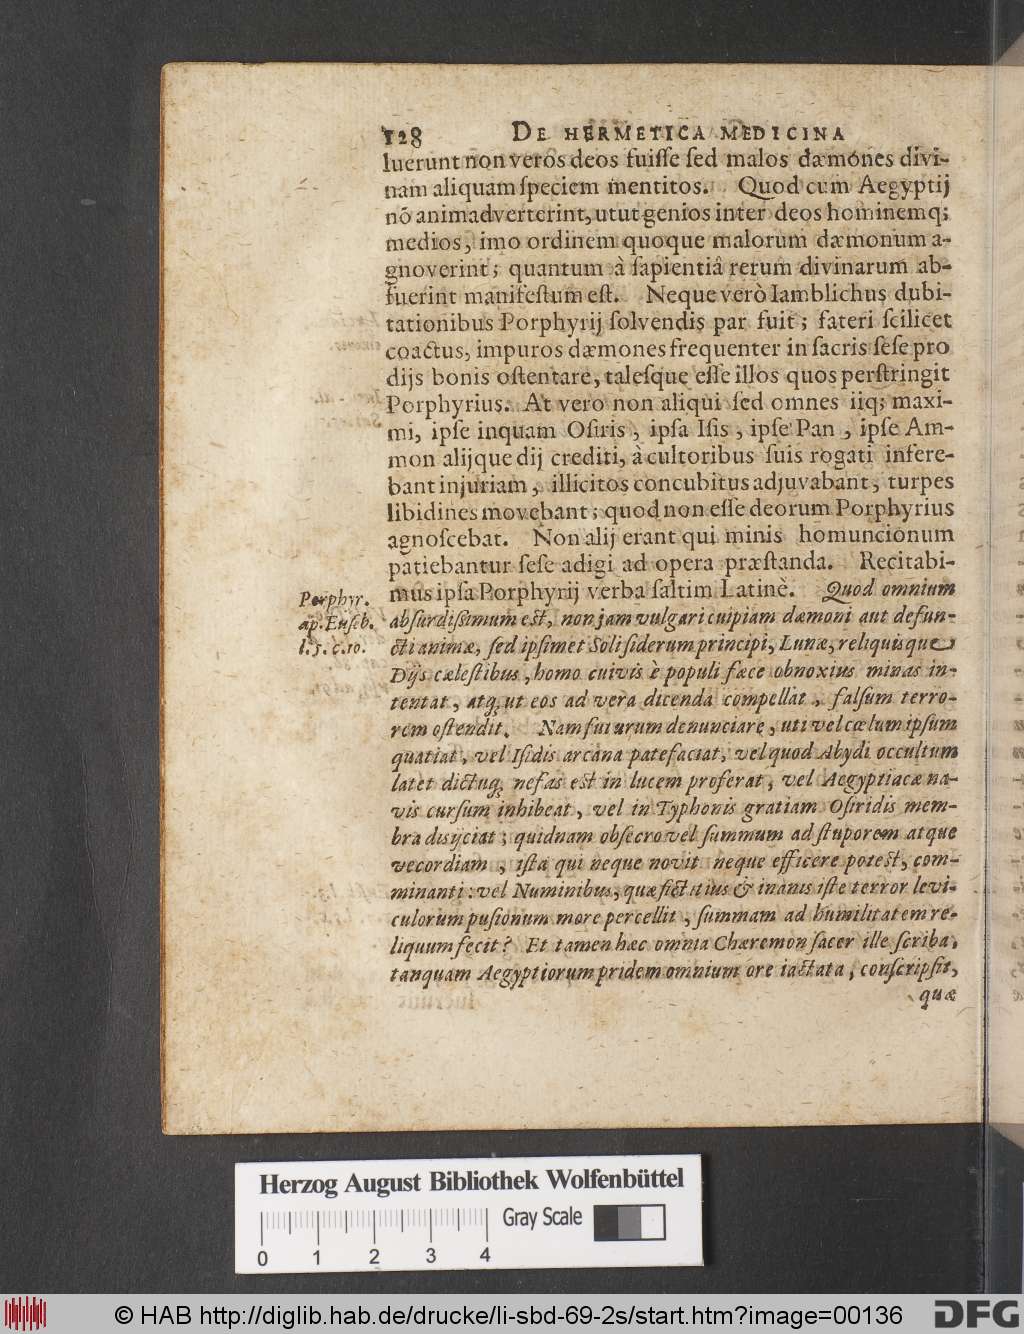 128 DE HERMETICA MEDICINA
luerunt non veros deos fuiſſe ſed malos dæmónes divi-
nam aliquam ſpeciem mentitos. Quod cum Aegyptij
nō animadverterint, utut genios inter deos hominemq;
medios, imo ordinem quoque malorum dæmonum a-
gnoverint; quantum à ſapientiâ rerum divinarum ab-
fuerint manifeſtum eſt. Neque verò Iamblichus dubi-
tationibus Porphyrij ſolvendis par fuit; fateri ſcilicet
coactus, impuros dæmones frequenter in ſacris ſeſe pro
dijs bonis oſtentare, taleſque eſſe illos quos perſtringit
Porphyrius. At vero non aliqui ſed omnes iiq; maxi-
mi, ipſe inquam Oſiris, ipſa Iſis, ipſe Pan, ipſe Am-
mon alijque dij crediti, à cultoribus ſuis rogati infere-
bant injuriam, illicitos concubitus adjuvabant, turpes
libidines movebant; quod non eſſe deorum Porphyrius
agnoſcebat. Non alij erant qui minis homuncionum
patiebantur ſeſe adigi ad opera præſtanda. Recitabi-
mus ipſa Porphyrij verba ſaltim Latinè. Quod omnium
Porphyr.
ap. Euſeb.
l. 5. c. 10.
abſurdiſsimum eſt, non jam vulgari cuipiam dæmoni aut defun-
cti animæ, ſed ipſimet Soli ſiderum principi, Lunæ, reliquisque
Dijs cæleſtibus, homo cuivis è populi fæce obnoxius minas in-
tentat, atq; ut eos ad vera dicenda compellat, falſum terro-
rem oſtendit. Nam futurum denunciare, uti vel cœlum ipſum
quatiat, vel Iſidis arcana patefaciat, vel quod Abydi occultum
latet dictuq; nefas eſt in lucem proferat, vel Aegyptiacæ na-
vis curſum inhibeat, vel in Typhonis gratiam Oſiridis mem-
bra disijciat; quidnam obſecro vel ſummum ad ſtuporem atque
vecordiam, iſta qui neque novit neque efficere poteſt, com-
minanti: vel Numinibus, quæ fictitius & inanis iſte terror levi-
culorum puſionum more percellit, ſummam ad humilitatem re-
liquum fecit? Et tamen hæc omnia Chæremon ſacer ille ſcriba,
tanquam Aegyptiorum pridem omnium ore iactata, conſcripſit,
quæ
Herzog August Bibliothek Wolfenbüttel
Gray Scale
0 1 2 3 4
© HAB http://diglib.hab.de/drucke/li-sbd-69-2s/start.htm?image=00136
DFG